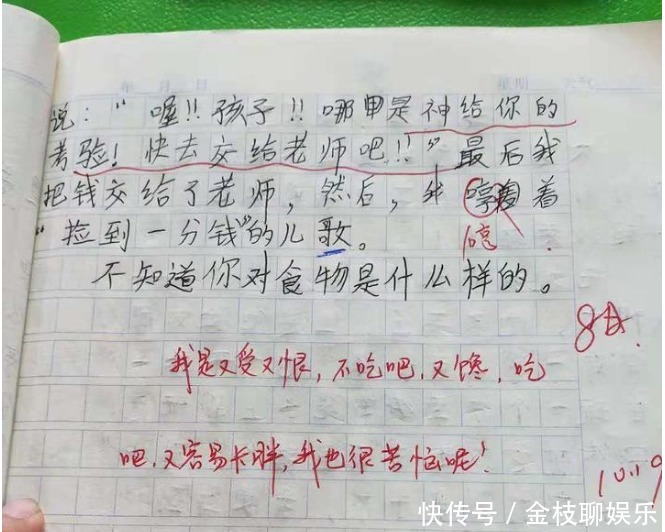 年 月 日 星期
说：“喔!!孩子!!哪里是神给你的
考验！快去交给老师吧!!”最后我
把钱交给了老师，然后，我着
哼
“捡到一分钱”的儿歌。
不知道你对食物是什么样的。
我是又爱又恨，不吃吧，又馋，吃
吧，又容易长胖，我也很苦恼呢！
10.19
快传号／金枝聊娱乐